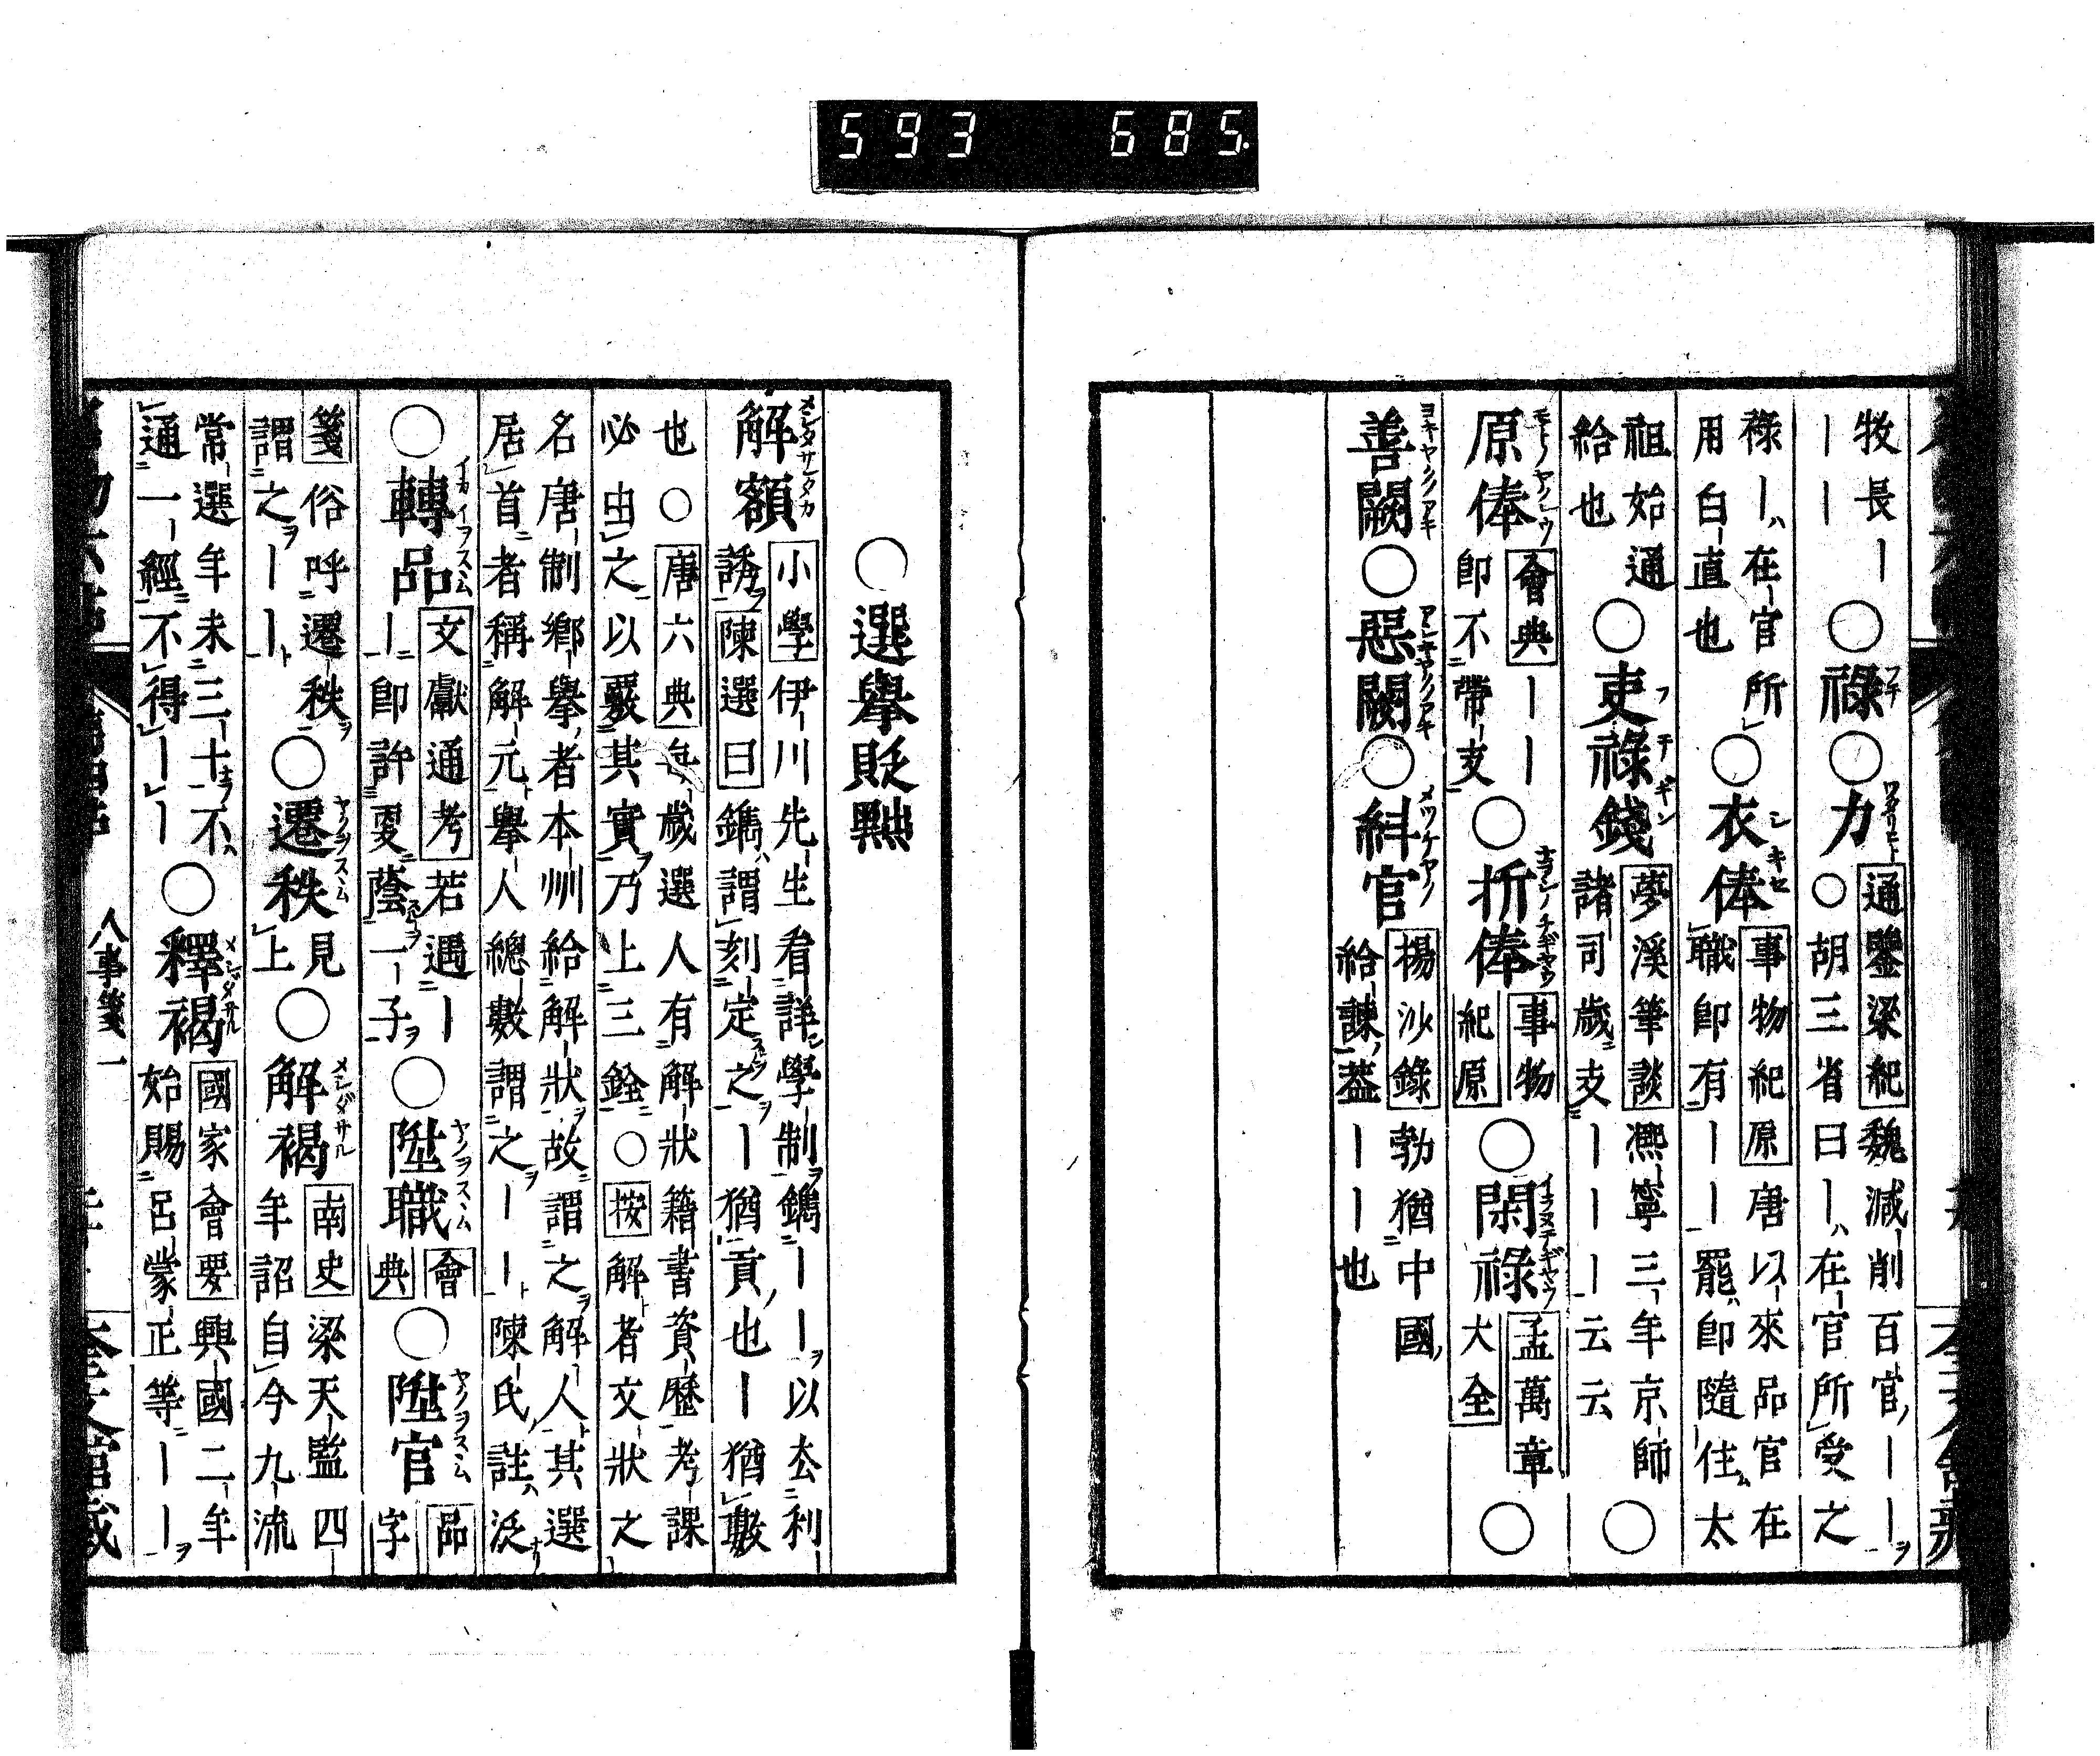 593 685.
牧長ー〇祿〇力通鑒梁紀魏減削百官ーー
ーー〇胡三省曰ー在官所受之
祿ー在官所〇衣俸事物紀原唐以來品官在
用白直也職即有ーー罷即隨住太
祖始通〇吏祿錢夢溪筆談熙寧三年京師
給也諸司歲支ーーー云云〇
原俸會典ーー〇折俸事物〇閑祿孟萬章〇
即不帶支紀原大全
善闕〇惡闕〇糾官揚沙錄勃猶中國
給諫蓋ーー也
〇選擧貶黜
解額小學伊川先生看詳學制鐫ーー以去利
誘陳選曰鐫謂刻定之ー猶貢也ー猶數
也〇唐六典每歲選人有解狀籍書資歷考課
必由之以覈其實乃上三銓〇按解者文狀之
名唐制鄉擧者本州給解狀故謂之解人其選
居首者稱解元擧人總數謂之ーー陳氏註泛
〇轉品文獻通考若遇ー〇陞職會〇陞官品
ー即許更蔭一子典字
箋俗呼遷秩〇遷秩見〇解褐南史梁天監四
謂之ーー上年詔自今九流
常選年未三十不〇釋褐國家會要興國二年
通一經不得ーー始賜呂蒙正等ーー
人事箋一